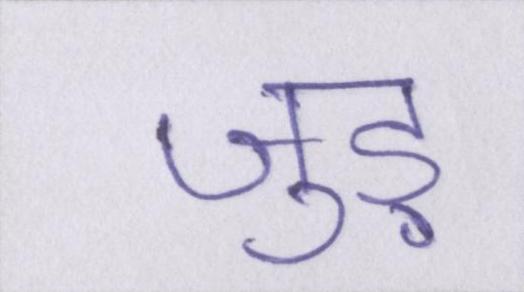 जुड़